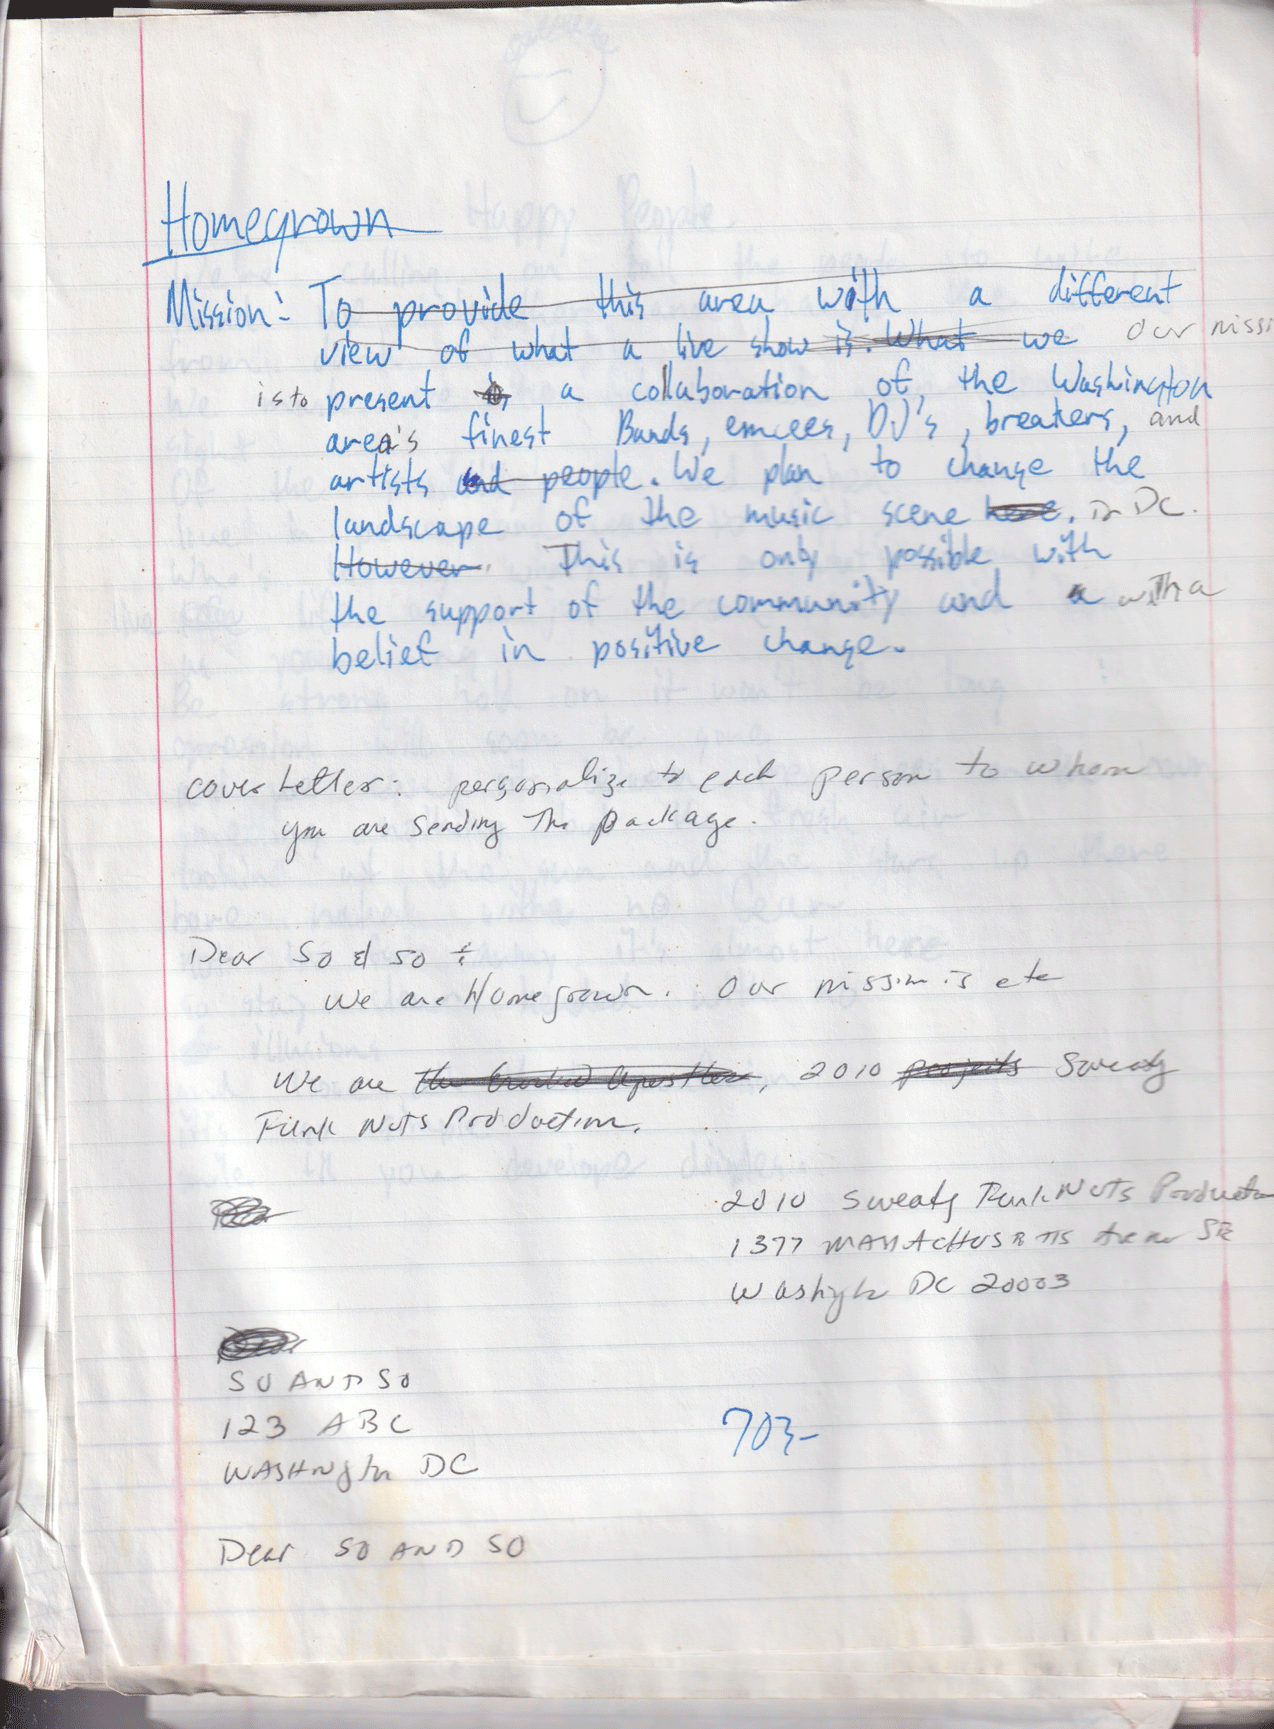 Homegrown
Mission: To provide this area with a different
view of what a live show is. What we Our missi
is to present is a collaboration of, the Washington
area's finest Bands, emcees, DJ's, breakers, and
artists and people. We plan to change the
landscape of the music scene here. in DC.
However. This is only possible with
the support of the community and a with a
belief in positive change.
cover letter: personalize to each person to whom
you are sending the package.
Dear So & so :
We are Homegrown. Our mission is etc
We are the Apostles, 2010 projects Sweaty
Funk Nuts Production.
2010 Sweaty Funk Nuts Production
1377 MASSACHUSETTS Avenue SE
Washington DC 20003
SO AND SO
123 ABC
WASHINgton DC
703-
Dear SO AND SO
Happy People